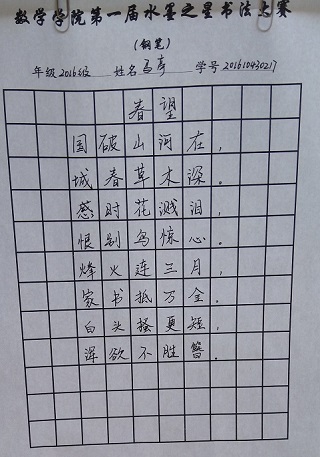 数学学院第一届水墨之星书法大赛
(钢笔)
年级2016级 姓名马亭 学号20161040217
春望
国破山河在，
城春草木深。
感时花溅泪，
恨别鸟惊心。
烽火连三月，
家书抵万金。
白头搔更短，
浑欲不胜簪。